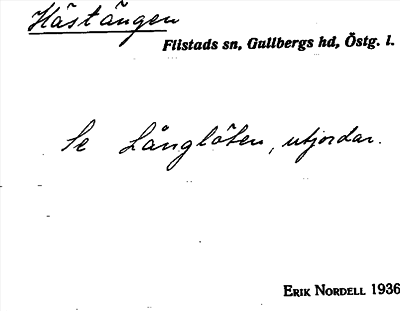 Hästängen
Flistads sn, Gullbergs hd, Östg. l.
Se Långlöten, utjordar.
ERIK NORDELL 1936